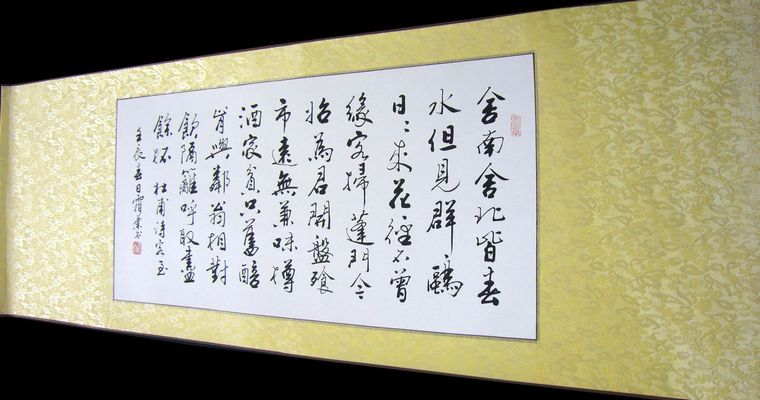 舍南舍北皆春
水但見群鷗
日〻來花徑不曾
緣客掃蓬門今
始為君開盤飧
市遠無兼味樽
酒家貧只舊醅
肯與鄰翁相對
飲隔籬呼取盡
餘杯 杜甫詩客至
壬辰春日